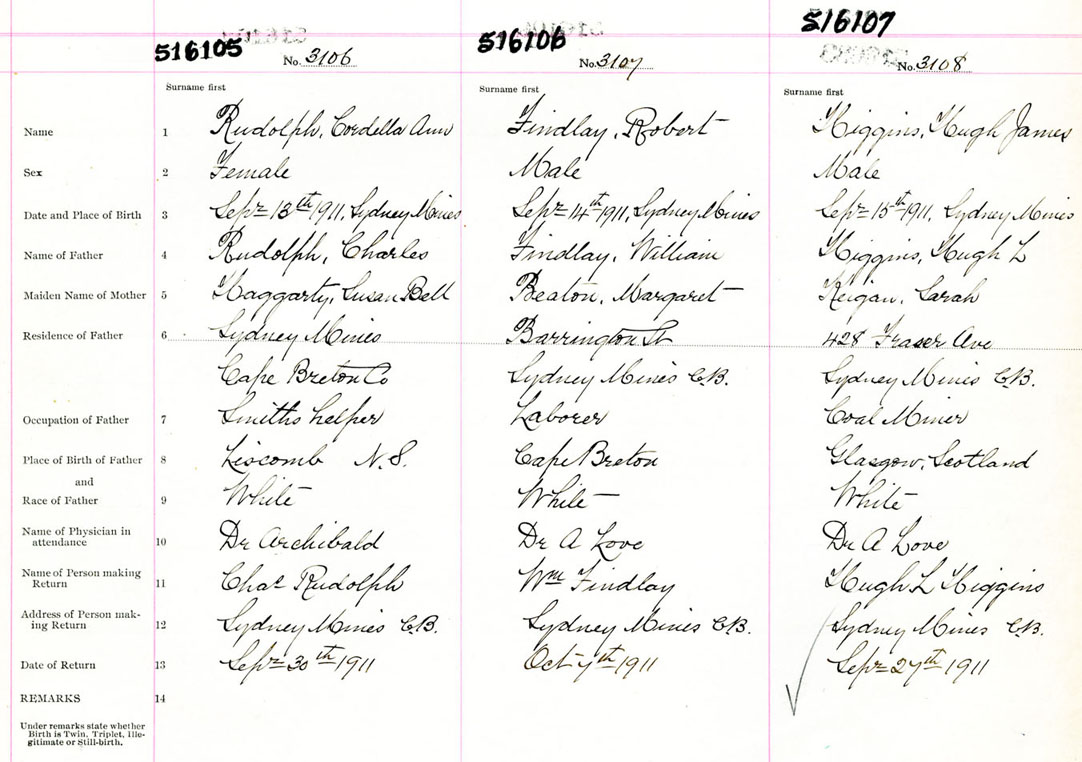 516105 516106 516107
No. 3106 No. 3107 No. 3108
Surname first Surname first Surname first
Name 1 Rudolph, Cordella Ann Findlay, Robert Higgins, Hugh James
Sex 2 Female Male Male
Date and Place of Birth 3 Sepr 13th 1911, Sydney Mines Sepr 14th 1911, Sydney Mines Sepr 15th 1911, Sydney Mines
Name of Father 4 Rudolph, Charles Findlay, William Higgins, Hugh L
Maiden Name of Mother 5 Haggarty, Susan Bell Beaton, Margaret Keigan, Sarah
Residence of Father 6 Sydney Mines Barrington St 428 Fraser Ave
Cape Breton Co Sydney Mines C.B. Sydney Mines C.B.
Occupation of Father 7 Smiths helper Laborer Coal Miner
Place of Birth of Father 8 Liscomb N.S. Cape Breton Glasgow, Scotland
and
Race of Father 9 White White White
Name of Physician in
attendance 10 Dr Archibald Dr A Love Dr A Love
Name of Person making
Return 11 Chas Rudolph Wm Findlay Hugh L Higgins
Address of Person mak-
ing Return 12 Sydney Mines C.B. Sydney Mines C.B. Sydney Mines C.B.
Date of Return 13 Sepr 30th 1911 Oct 7th 1911 Sepr 27th 1911
REMARKS 14
Under remarks state whether
Birth is Twin, Triplet, Ille-
gitimate or Still-birth.